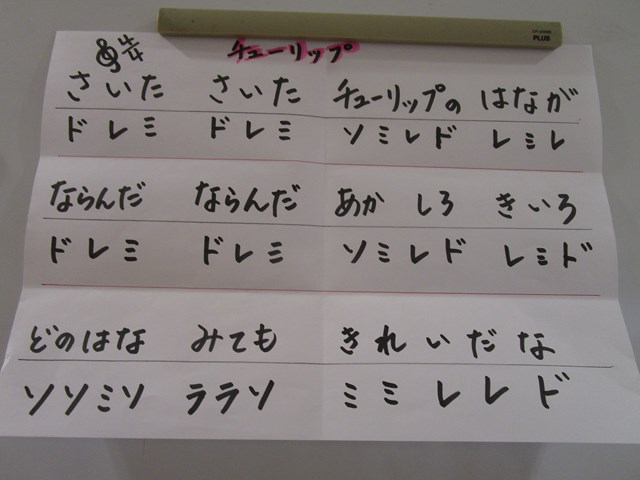 PLUS
4/4 チューリップ
さいた さいた チューリップの はなが
ドレミ ドレミ ソミレド レミレ
ならんだ ならんだ あか しろ きいろ
ドレミ ドレミ ソミレド レミド
どのはな みても きれいだな
ソソミソ ララソ ミミレレド